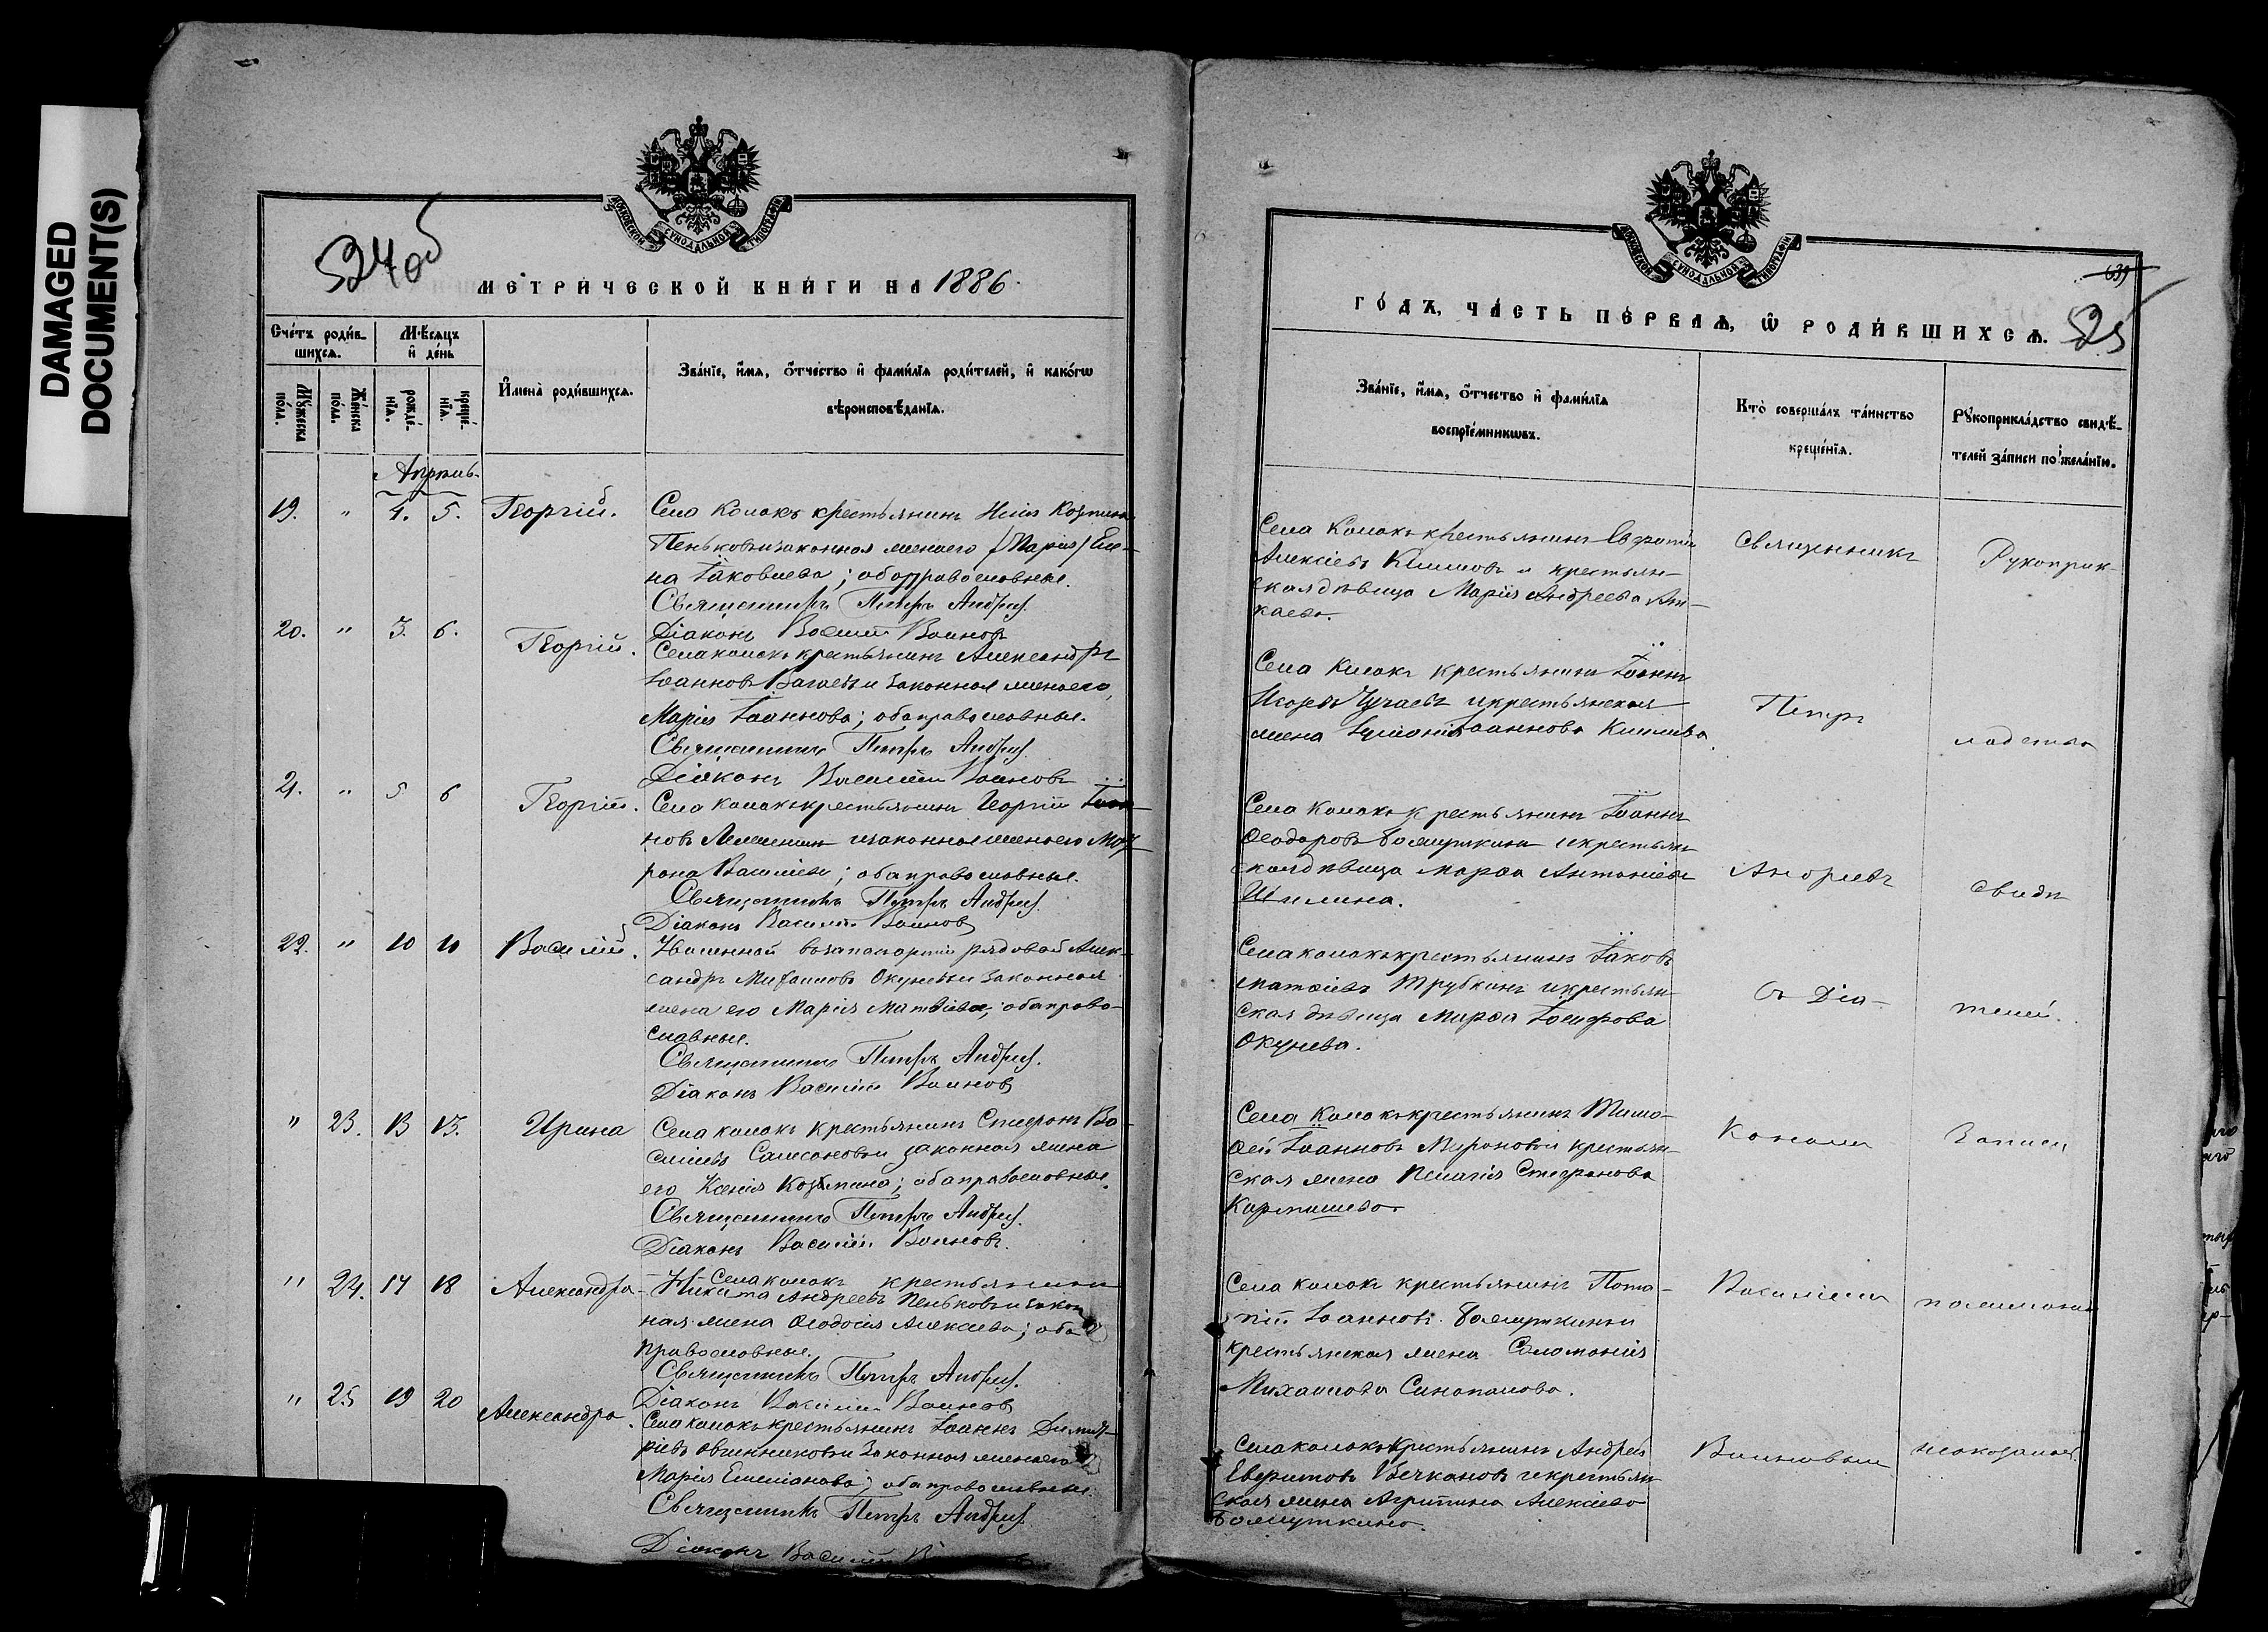 DAMAGED
DOCUMENT(S)
524об
МЕТРИЧЕСКОЙ КНИГИ НА 1886
Счетъ родив-
шихся.
Мѣсяцъ
и день
Мужеска пола.
Женска пола.
рожде-
нія.
креще-
нія.
Имена родившихся.
Званіе, имя, отчество и фамилія родителей, и какого
вѣроисповѣданія.
Апрѣль
19. " 4. 5. Георгій. Села Колокъ крестьянинъ
законная жена его
Іаковлева; оба православные.
Священникъ Петръ Андр
Діаконъ Василій Воинов
20. " 3. 6. Георгій. Села Колокъ крестьянинъ Александръ
Іоанновъ и законная жена его
Марія Іоаннова; оба православные.
Священникъ Петръ Андр
Діаконъ Василій Воиновъ
21. " 5 6 Георгій. Села Колокъ крестьянинъ Георгій Іоан-
новъ и законная жена его Мат-
рона Васильева; оба православные.
Священникъ Петръ Андр
Діаконъ Василій Воинов
22. " 10 10 Василій. Уволенный въ запасъ арміи рядовой Алек-
сандръ Михаиловъ Окуневъ и законная
жена его Марія Матвіева; оба право-
славные.
Священникъ Петръ Андр
Діаконъ Василій Воинов
" 23. 13 13. Ирина Села Колокъ крестьянинъ Стефанъ Ва-
сильевъ Самсоновъ и законная жена
его Ксенія Козмина; оба православные.
Священникъ Петръ Андр
Діаконъ Василій Воиновъ.
" 24. 17 18 Александра Села Колокъ крестьянинъ
Никита Андреевъ Пеньковъ и закон
ная жена Ѳеодосія Алексіева; оба
православные.
Священникъ Петръ Андр
Діаконъ Василій Воинов
" 25 19 20 Александра. Села Колокъ крестьянинъ Іоаннъ Димит-
ріевъ Овчинниковъ и законная жена его
Марія Емеліанова; оба православные.
Священникъ Петръ Андр
Діаконъ Василій
ГОДЪ, ЧАСТЬ ПЕРВАЯ, Ѡ РОДИВШИХСЯ.
639
525
Званіе, имя, отчество и фамилія
воспріемниковъ.
Кто совершалъ таинство
крещенія.
Рукоприкладство свидѣ-
телей записи по желанію.
Села Колокъ крестьянинъ
Алексіевъ Климовъ и крестьян-
ская дѣвица Марія Андреева
Священникъ
Рукоприк-
Села Колокъ крестьянинъ Іоаннъ
и крестьянская
жена Іоаннова
Петръ
ладство
Села Колокъ крестьянинъ Іоаннъ
Ѳеодоровъ Болмуткинъ и крестьян
ская дѣвица Марѳа Антоніева
Шилина.
Андреевъ
свидѣ
Села Колокъ крестьянинъ Іаковъ
Матѳіевъ Трубкинъ и крестьян-
ская дѣвица Марѳа Іосифова
Окунева.
Съ Діа-
телей.
Села Колокъ крестьянинъ Тимо-
ѳей Іоанновъ Мироновъ и крестьян-
ская жена Пелагія Стефанова
Карташева.
кономъ
записи
Села Колокъ крестьянинъ Пота-
пій Іоанновъ Болмуткинъ и
крестьянская жена Соломонія
Михаилова Синопалова.
Василіемъ
по желанію
Села Колокъ крестьянинъ Андрей
Вечкановъ и крестьян-
ская жена Агриппина Алексіева
Болмуткина.
Воиновым
не оказалось.